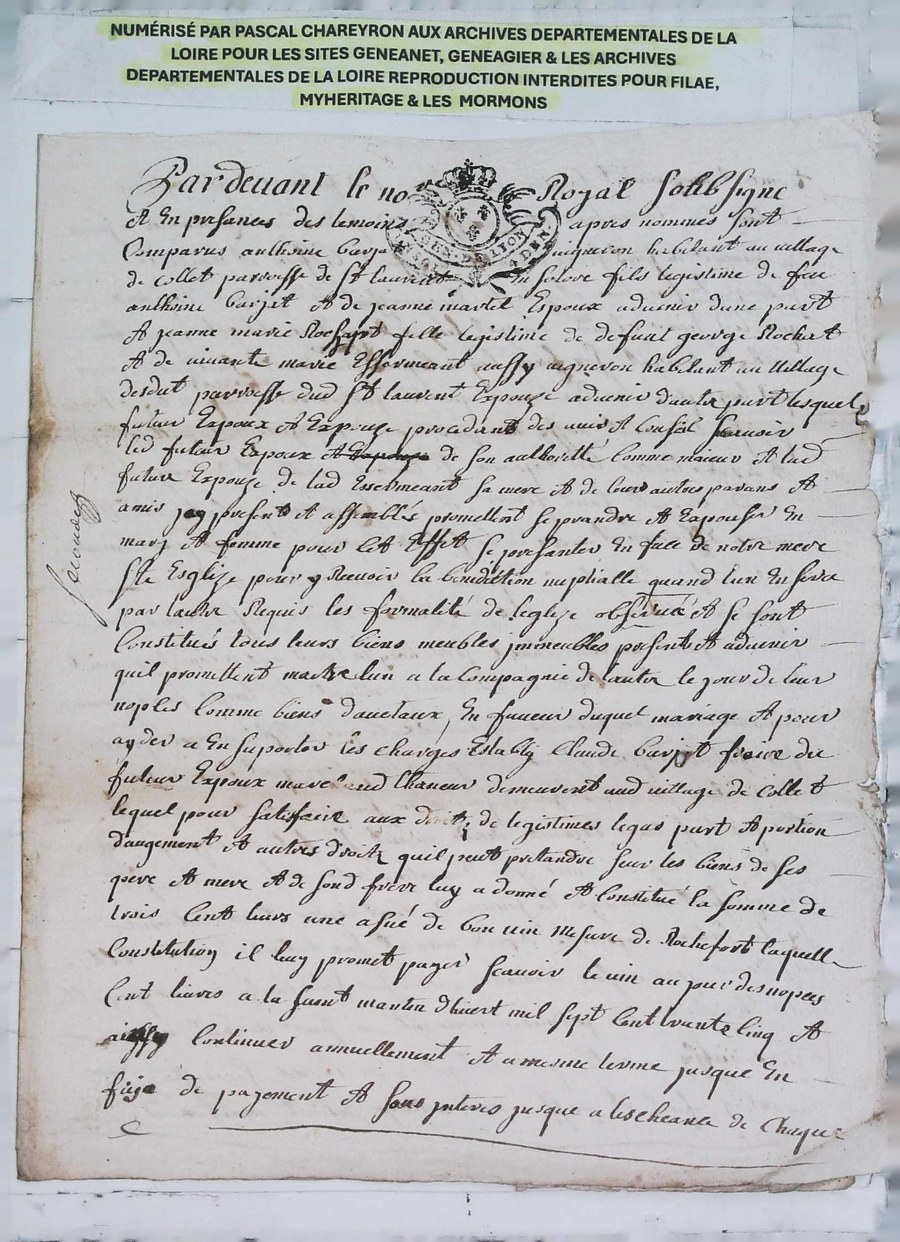 NUMÉRISÉ PAR PASCAL CHAREYRON AUX ARCHIVES DEPARTEMENTALES DE LA
LOIRE POUR LES SITES GENEANET, GENEAGIER & LES ARCHIVES
DEPARTEMENTALES DE LA LOIRE REPRODUCTION INTERDITES POUR FILAE,
MYHERITAGE & LES MORMONS
Pardevant le no Royal soubsigne
et En presances des temoins apres nommes sont
Comparus anthoine barje uigneron habitant au uillage
de collet parroisse de St laurent En solore fils legistime de feu
anthoine barjet et de jeanne martel Espoux aduenir dune part
et jeanne marie Rochart fille legistime de defunt george Rochart
et de uiuante marie Essermeant aussy uigneron habitant au Uillage
desdut parroisse dud St laurent Expouze aduenir dautre part lesquels
futeur Expoux et Expouze procedants des auis et Conseil scauoir
led futeur Expoux et Expouze de son authorité comme maieur et lad
future Expouze de lad Essermeant sa mere et de leurs autres parans et
amis jcy presents et assemblés promettent se prandre et Expouser En
marj et femme pour cet Effet se presanter En face de notre mere
Ste Esglize pour y Receuoir la benediction nuptialle quand lun En sera
par lautre Requis les formalité de leglize obserué et se sont
Constitués tous leurs biens meubles jmmeubles presents et aduenir
quil promettent mettre lun a la Compagnie de lautre le jour de leur
noples Comme biens dauetaux, En faueur duquel mariage et pour
ayder a En suporter les charges Establj Claude barjot fraire du
futeur Expoux marchand Chaneur demeurent aud uillage de Collet
lequel pour satisfaire aux droits de legistimes legas part et portion
daugement et autres droits quil peut pretandre sur les biens de ses
pere et mere et de sond frere luy a donné et Constitué la somme de
trois Cent liures une asné de bon uin mesure de Rochefort laquelle
Constitution il luy promet payer scauoir le uin au jour des nopces
Cent liures a la saint martin dhiuert mil sept Cent trante Cinq et
aissy Continuer annuellement et a mesme terme jusque En
fin de payement et sans jnteres jusque a lescheance de Chaque
GEN. DE LYON
4 DEN.